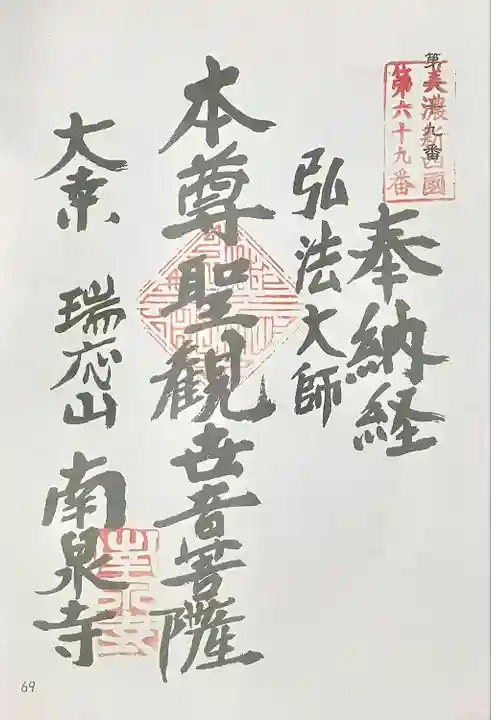 美濃新四國
第六十九番
奉納経
弘法大師
本尊聖観世音菩薩
大桒 瑞応山 南泉寺
69